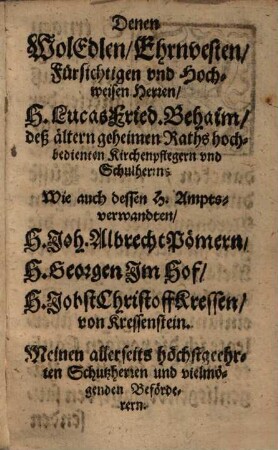 Denen
WolEdlen/Ehrnvesten/
Fürsichtigen vnd Hoch-
weisen Herren/
H. Lucas Fried. Behaim/
deß ältern geheimen Raths hoch-
bedienten Kirchenpflegern vnd
Schulherrn:
Wie auch dessen H. Ampts-
verwandten/
H. Joh. Albrecht Pömern/
H. Georgen Im Hof/
H. Jobst Christoff Kressen/
von Kressenstein.
Meinen allerseits höchstgeehr-
ten Schutzherren vnd vielmö-
genden Beförde-
rern.